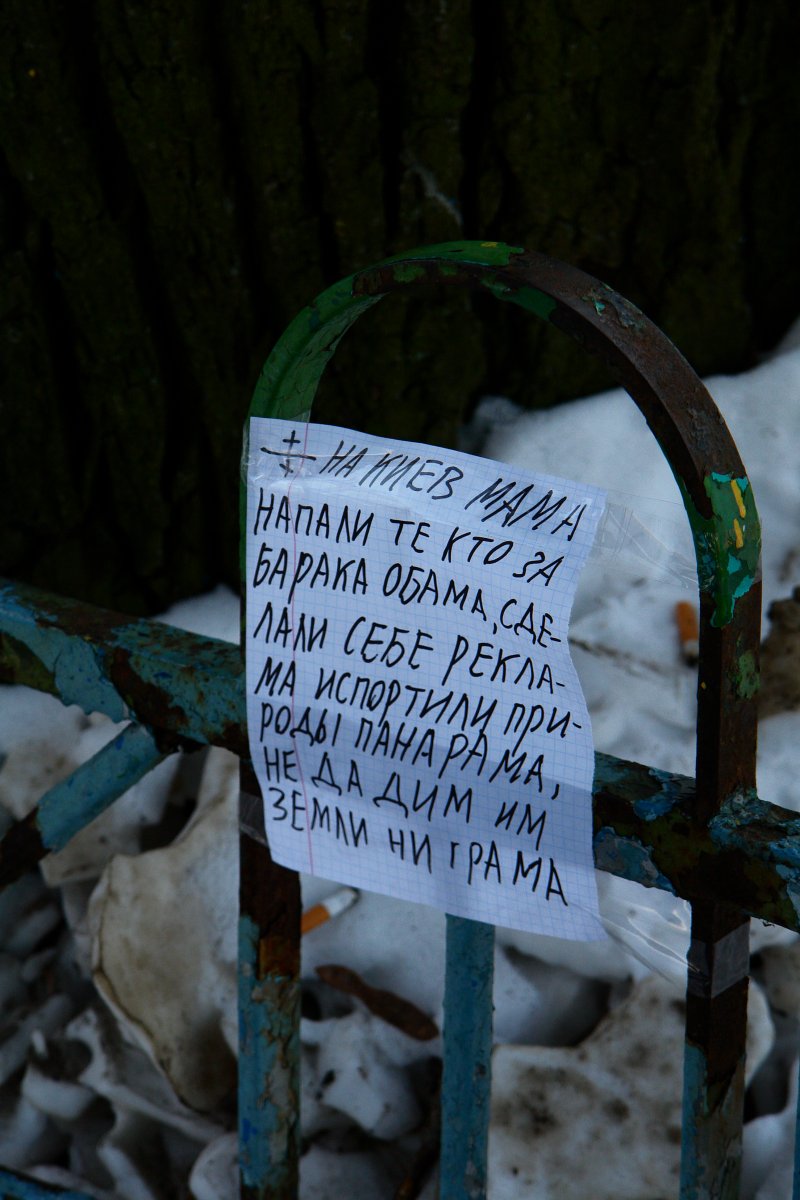 НА КИЕВ МАМА
НАПАЛИ ТЕ КТО ЗА
БАРАКА ОБАМА, СДЕ-
ЛАЛИ СЕБЕ РЕКЛА-
МА ИСПОРТИЛИ ПРИ-
РОДЫ ПАНАРАМА,
НЕ ДА ДИМ ИМ
ЗЕМЛИ НИ ГРАМА